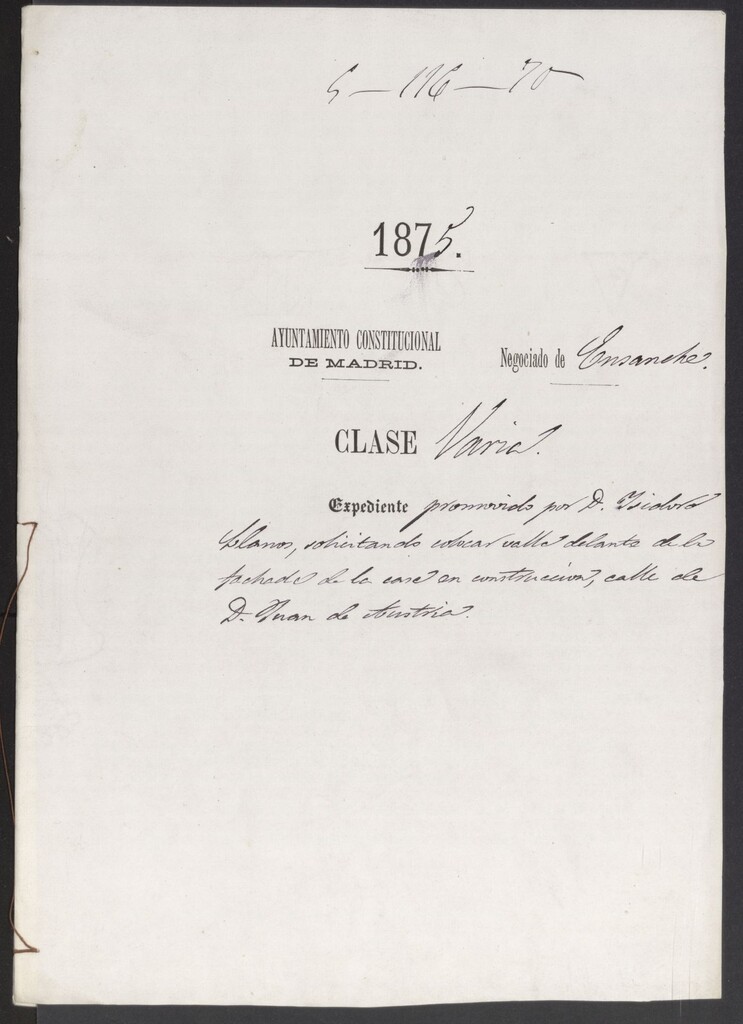 5-116-70
1875.
AYUNTAMIENTO CONSTITUCIONAL
DE MADRID.
Negociado de Ensanche.
CLASE Varia.
Expediente promovido por D. Isidoro
Llanos, solicitando colocar valla delante de la
fachada de la casa en construccion, calle de
D. Juan de Austria.